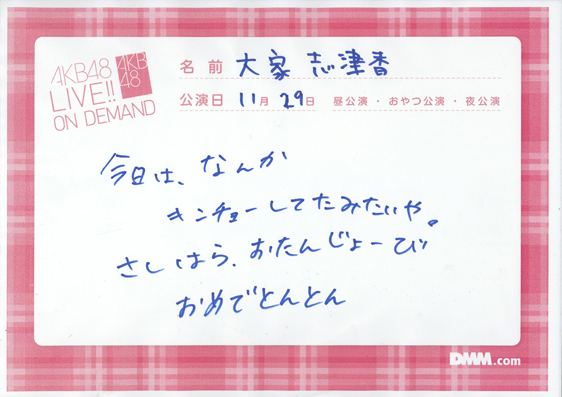 AKB48
LIVE!!
ON DEMAND
AKB
48
名前 大家 志津香
公演日 11月 29日 昼公演・おやつ公演・夜公演
今日は、なんか
キンチョーしてたみたいや。
さしはら、おたんじょーび
おめでとんとん
DMM.com